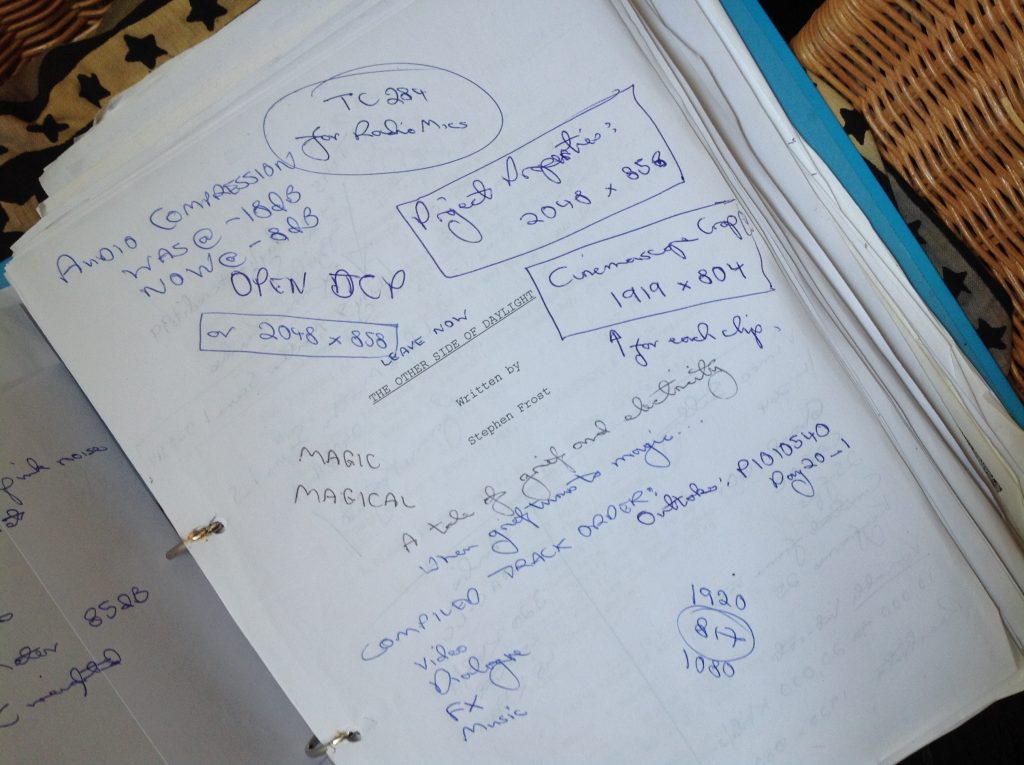 TC 284
for Radio Mics
AUDIO COMPRESSION
WAS @ -18dB
NOW @ -8dB
Project Properties:
2048 x 858
OPEN DCP
Cinemascope Crop
1919 x 804
↑ for each clip.
or 2048 x 858
LEAVE NOW
THE OTHER SIDE OF DAYLIGHT
Written by
Stephen Frost
MAGIC
MAGICAL
A tale of grief and electricity
When grief turns to magic...
COMPILED TRACK ORDER:
Video
Dialogue
FX
Music
Outtake: P1010540
Day 20-1
1920
817
1080
pink noise
85dB